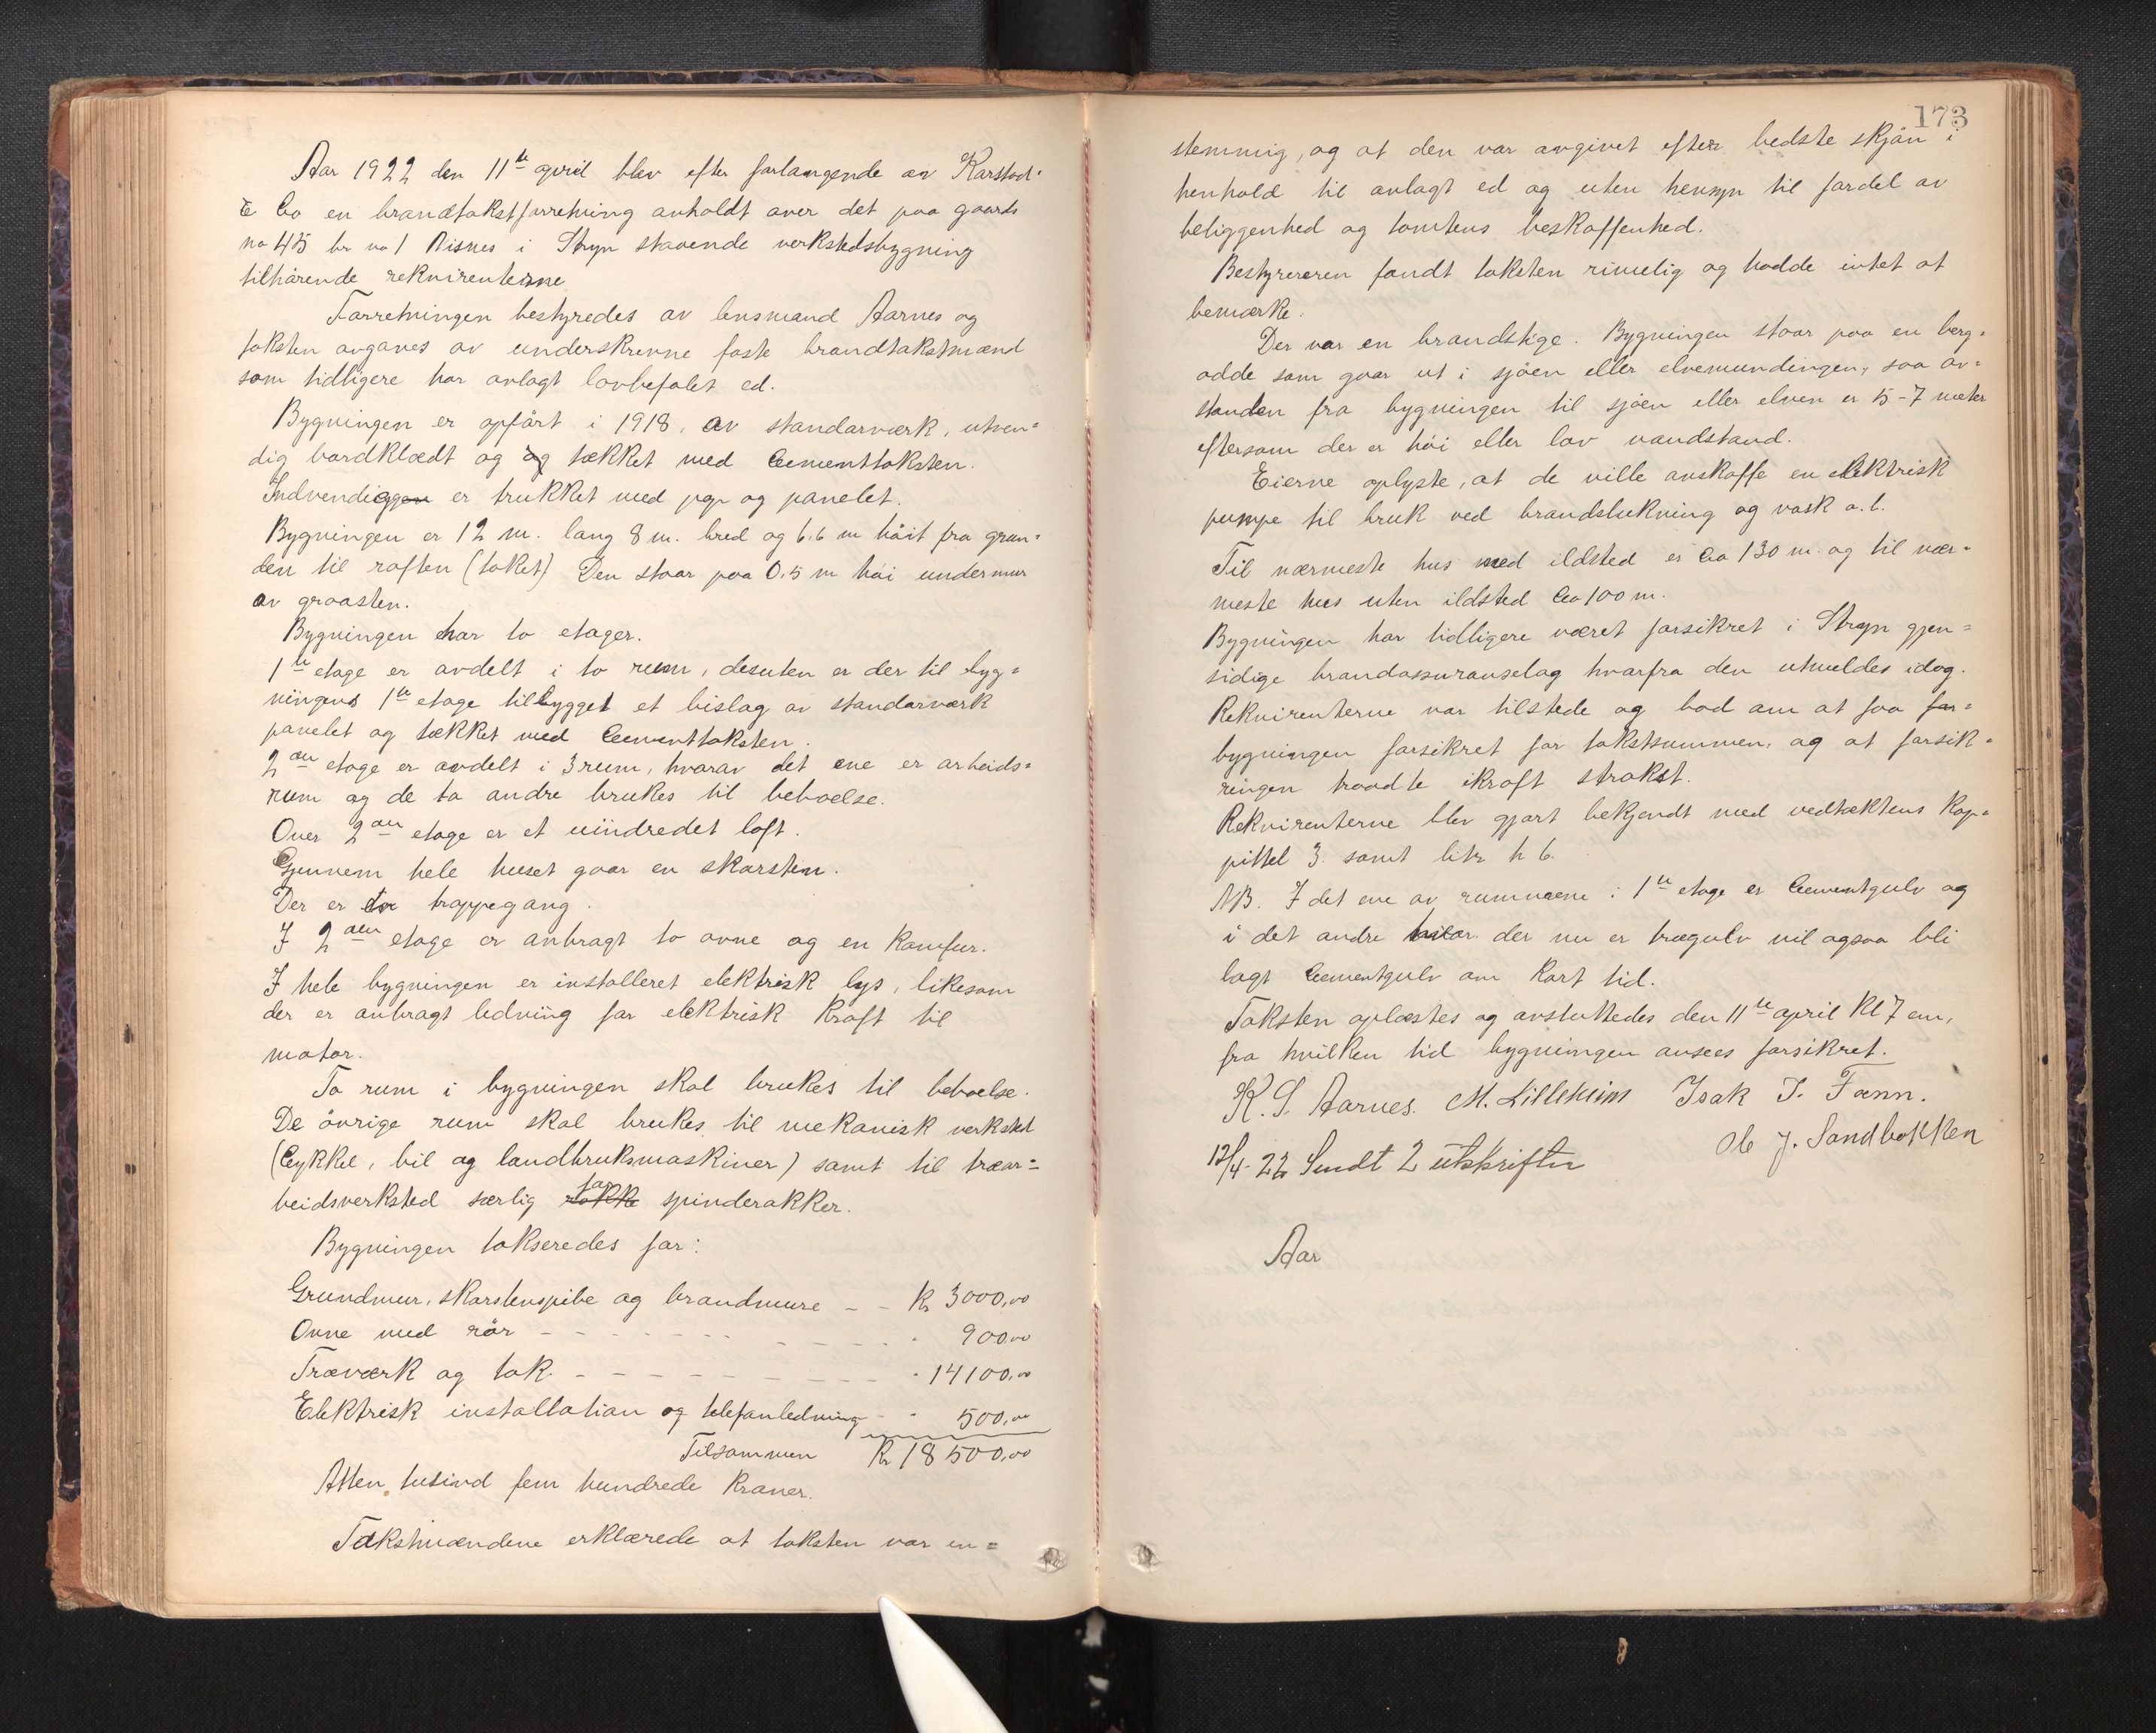 Aar 1922 den 11te april blev efter forlangende av Karstad
& Co en brandtakstforretning avholdt over det paa gaards
no 45 br no 1 Visnes i Stryn staaende verkstedsbygning
tilhørende rekvirenterne
Forretningen bestyredes av lensmand Aarnes og
taksten avgaves av underskrevne faste brandtakstmænd
som tidligere har avlagt lovbefalet ed.
Bygningen er opført i 1918, av standarværk, utven=
dig bordklædt og og tækket med Cementtaksten.
Indvendig er trukket med pap og panelet.
Bygningen er 12 m. lang 8 m. bred og 6.6 m høit fra grun=
den til raften (taket) Den staar paa 0,5 m høi undermur
av graasten.
Bygningen har to etager.
1te etage er avdelt i to rum, desuten er der til byg=
ningens 1te etage tilbygget et bislag av standarværk
panelet og tækket med Cementtaksten.
2den etage er avdelt i 3 rum, hvorav det ene er arbeids=
rum og de to andre brukes til beboelse.
Over 2den etage er et uindredet loft.
Gjennem hele huset gaar en skorsten.
Der er en trappegang.
I 2den etage er anbragt to ovne og en komfur.
I hele bygningen er installeret elektrisk lys, likesom
der er anbragt ledning for elektrisk kraft til
motor.
To rum i bygningen skal brukes til beboelse.
De øvrige rum skal brukes til mekanisk verksted
(Cykkel, bil og landbruksmaskiner) samt til træar=
beidsverksted særlig rokke for spinderokker.
Bygningen takseredes for:
Grundmur, skorstenspibe og brandmure - - Kr 3000,00
Ovne med rør - - - 900,00
Træværk og tak - - - 14100,00
Elektrisk installation og telefonledning - - 500,00
Tilsammen Kr 18500,00
Atten tusind fem hundrede Kroner.
Takstmændene erklærede at taksten var en=
173
stemmig, og at den var avgivet efter bedste skjøn i
henhold til avlagt ed og uten hensyn til fordel av
beliggenhed og tomtens beskaffenhed.
Bestyreren fandt taksten rimelig og hadde intet at
bemærke.
Der var en brandstige. Bygningen staar paa en berg=
odde som gaar ut i sjøen eller elvemundingen, saa av=
standen fra bygningen til sjøen eller elven er 5-7 meter
eftersom der er høi eller lav vandstand.
Eierne oplyste, at de ville anskaffe en elektrisk
pumpe til bruk ved brandslukning og vask o. l.
Til nærmeste hus med ildsted er Ca 130 m. og til nær=
meste hus uten ildsted Ca 100 m.
Bygningen har tidligere været forsikret i Stryn gjen=
sidige brandassuranselag hvorfra den utmeldes idag.
Rekvirenterne var tilstede og bad om at faa for=
bygningen forsikret for takstsummen, og at forsik=
ringen traadte ikraft strakst.
Rekvirenterne blev gjort bekjendt med vedtæktens Kap=
pittel 3 samt litr h 6.
NB. I det ene av rummene i 1te etage er Cementgulv og
i det andre hvor der nu er trægulv vil ogsaa bli
lagt Cementgulv om kort tid.
Taksten oplæstes og avsluttedes den 11te april Kl 7 em,
fra hvilken tid bygningen ansees forsikret.
K. S. Aarnes. M. Lilleheim Isak J. Fænn.
Ole J. Sandbakken
12/4-22 Sendt 2 utskrifter
Aar